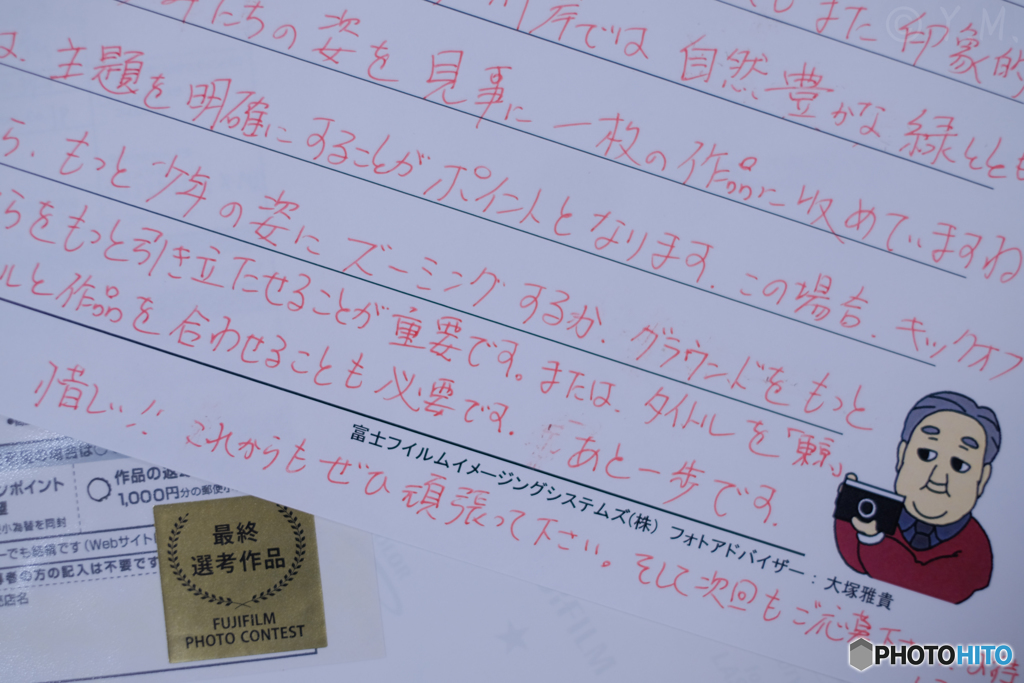 ©Y.M.
また印象的
たちの姿を見事に一枚の作品に収めていますね
では自然豊かな緑ととも
主題を明確にすることがポイントとなります。この場合、キックオフ
ら、もっと少年の姿にズーミングするか、グラウンドをもっと
らをもっと引き立たせることが重要です。または、タイトルを「
ルと作品を合わせることも必要です。あと一歩です。
惜しい!! これからもぜひ頑張って下さい。そして次回もご応募下さ
富士フイルムイメージングシステムズ(株) フォトアドバイザー：大塚雅貴
の場合は○
ンポイント
作品の返
1,000円分の郵便小
小為替を同封
ーでも結構です(Webサイト
の方の記入は不要です
店名
最終
選考作品
FUJIFILM
PHOTO CONTEST
PHOTOHITO